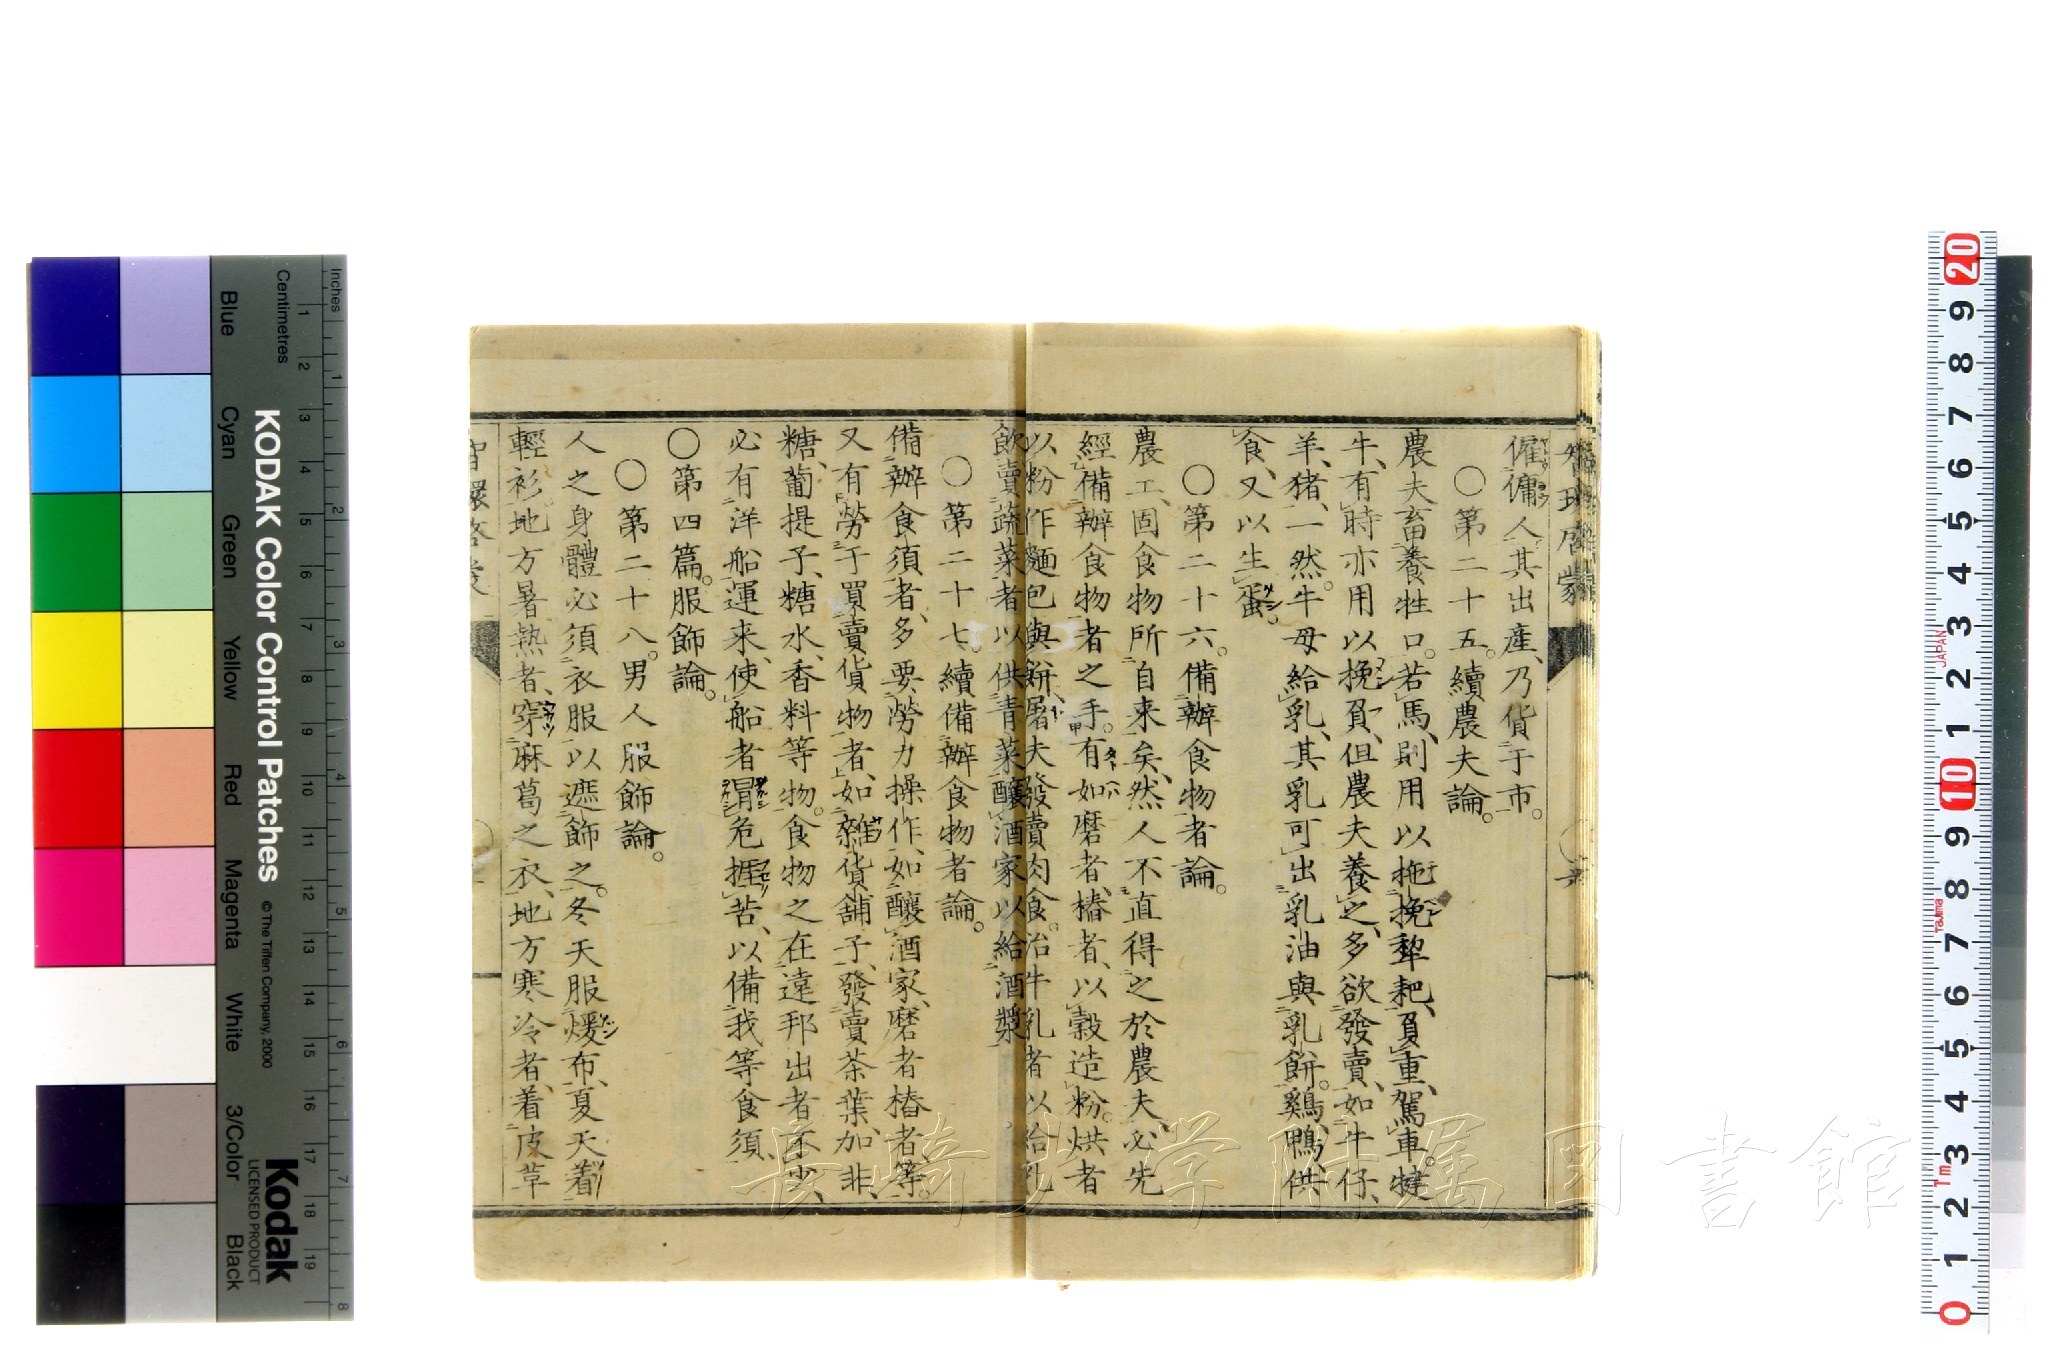 僱傭人其出產、乃貨于市。
〇第二十五。續農夫論。
農夫畜養牲口。若馬、則用以拖挽犂耙、負重、駕車。犍
牛、有時亦用以挽負、但農夫養之、多欲發賣、如牛仔、
羊、猪、一然。牛母給乳、其乳可出乳油與乳餅。鷄鴨、供
食、又以生蛋。
〇第二十六。備辦食物者論。
農工、固食物所自来矣、然人不直得之於農夫、必先
經備辦食物者之手。有如磨者、樁者、以穀造粉。烘者
以粉作麵包與餅、屠夫發賣肉食。治牛乳者以給乳
飲、賣蔬菜者以供青菜、釀酒家以給酒漿
〇第二十七。續備辦食物者論。
備辦食須者、多要勞力操作、如釀酒家、磨者樁者、等。
又有勞于買賣貨物者、如雜貨舖子、發賣茶葉、加非、
糖、葡提子、糖水、香料等物。食物之在遠邦出者不少、
必有洋船運来、使船者冒危捱苦、以備我等食須、
〇第四篇。服飾論。
〇第二十八。男人服飾論。
人之身體必須衣服以遮飾之。冬天服煖布、夏天着
輕衫。地方暑熱者、穿麻葛之衣、地方寒冷者、着皮草
KODAK Color Control Patches
© The Tiffen Company, 2000
Kodak
LICENSED PRODUCT
Inches
Centimetres
Blue
Cyan
Green
Yellow
Red
Magenta
White
3/Color
Black
JAPAN
Tajima
長崎大学附属図書館